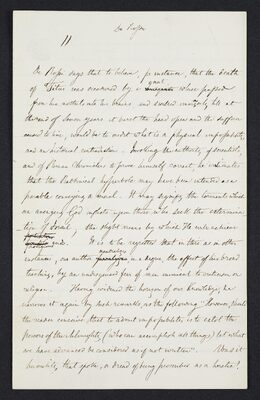 De Rossi
11
De Rossi says that to believe, for instance, that the death
of Titus was occasioned by a gnat whose passage
from his nostrils into his brains and worked
at the end of seven years it burst the head open and the sufferer
ceased to live, would be to assert what is a physical impossibility
and an historical contradiction. Invoking the authority of scientists,
and of Roman Chroniclers he
that the Rabbinical hyperbole may have been intended as a
parable conveying a moral. It may signify the torments which
an avenging God inflicts upon those who seek the extermina-
tion of Israel, the slight means by which He
ends. It is to be regretted that in this as in other
instances, our author in a degree, the effect of his broad
teaching, by an undisguised fear of being
religion. Having widened the horizon of our knowledge, he
narrows it again by such remarks, as the following "However,
the reader conceives that to admit impossibilities is to extol the
powers of the Almighty (who can accomplish all things) let what
we have advanced be considered as if not written". Was it
humility that spoke, or dread of being proscribed as a heretic?